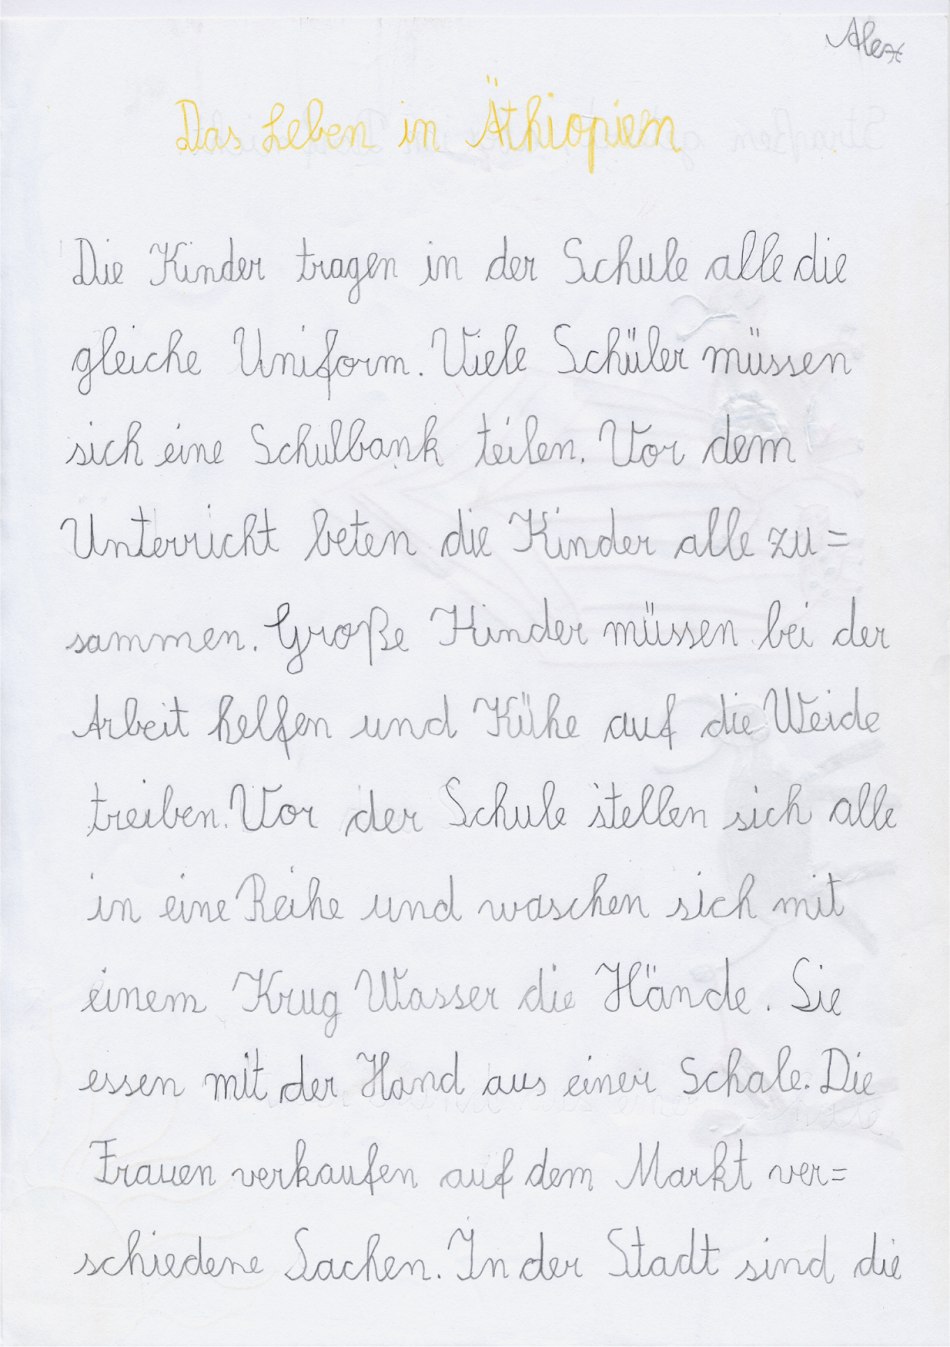 Alex
Das Leben in Äthiopien
Die Kinder tragen in der Schule alle die
gleiche Uniform. Viele Schüler müssen
sich eine Schulbank teilen. Vor dem
Unterricht beten die Kinder alle zu=
sammen. Große Kinder müssen bei der
Arbeit helfen und Kühe auf die Weide
treiben. Vor der Schule stellen sich alle
in eine Reihe und waschen sich mit
einem Krug Wasser die Hände. Sie
essen mit der Hand aus einer Schale. Die
Frauen verkaufen auf dem Markt ver=
schiedene Sachen. In der Stadt sind die